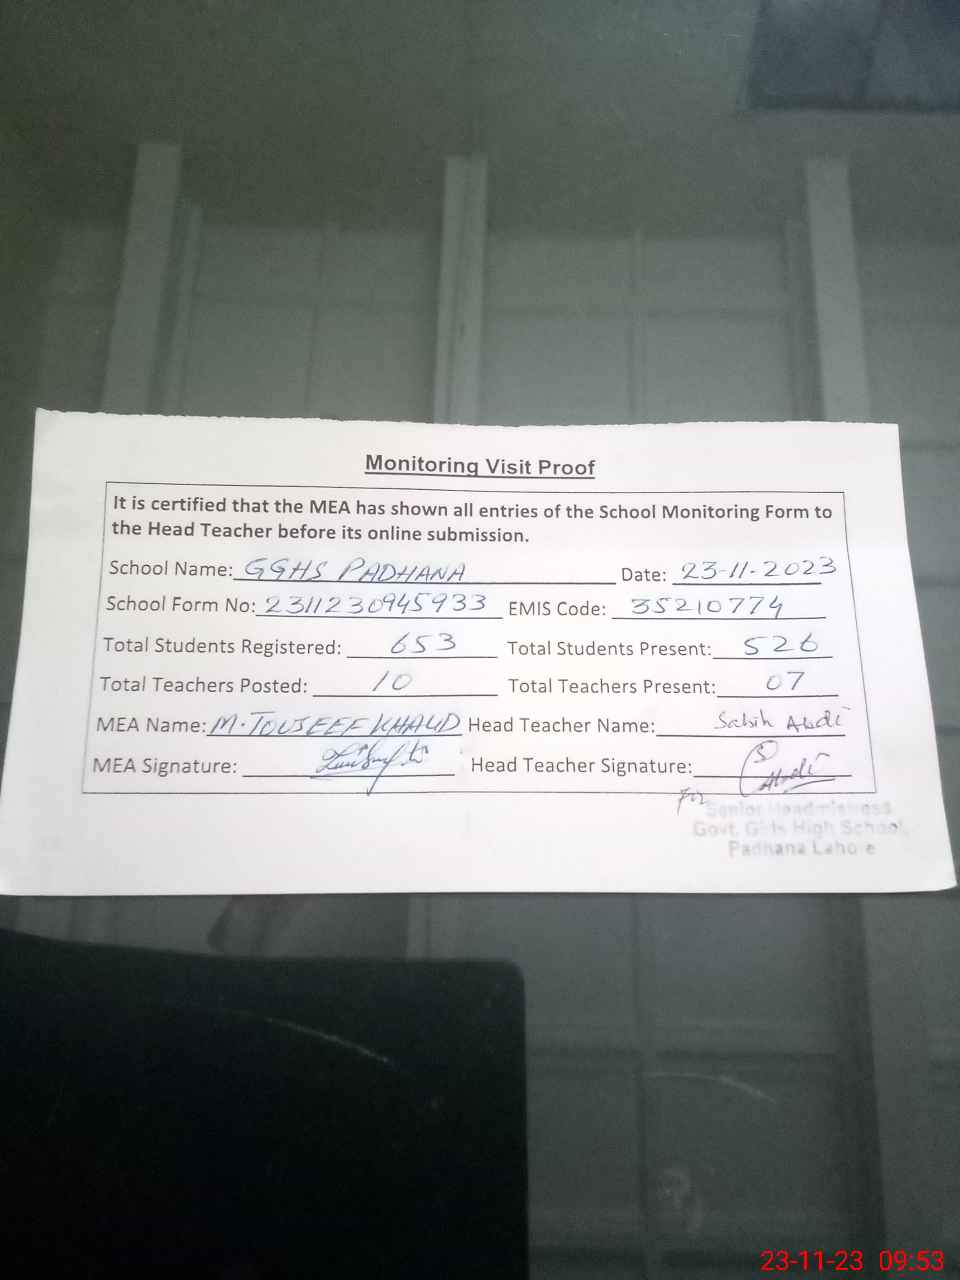 Monitoring Visit Proof
It is certified that the MEA has shown all entries of the School Monitoring Form to
the Head Teacher before its online submission.
School Name: GGHS PADHANA Date: 23-11-2023
School Form No: 2311230945933 EMIS Code: 35210774
Total Students Registered: 653 Total Students Present: 526
Total Teachers Posted: 10 Total Teachers Present: 07
MEA Name: M. TOUSEEF KHALID Head Teacher Name: Sabih Abdi
MEA Signature: Head Teacher Signature:
For Senior Headmistress
Govt. Girls High School,
Padhana Lahore
23-11-23 09:53